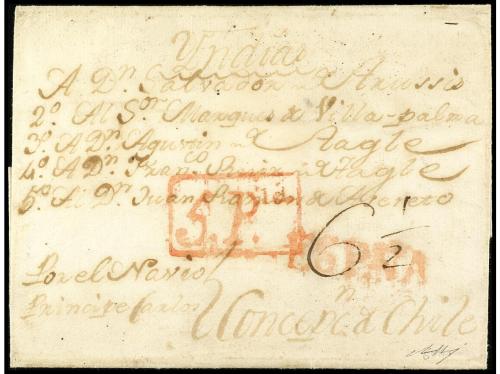 Yndias
A Dn. Salvador de Arussio
2o. Al Sor. Marques de Villa-palma
3o. A Dn. Agustin de Tagle
4o. A Dn. Franco. de Tagle
5o. Al Dn. Juan Ramon de
S.P.
6 1/2
ESPÑA
Por el Navio
Principe Carlos
Concepn. d Chile